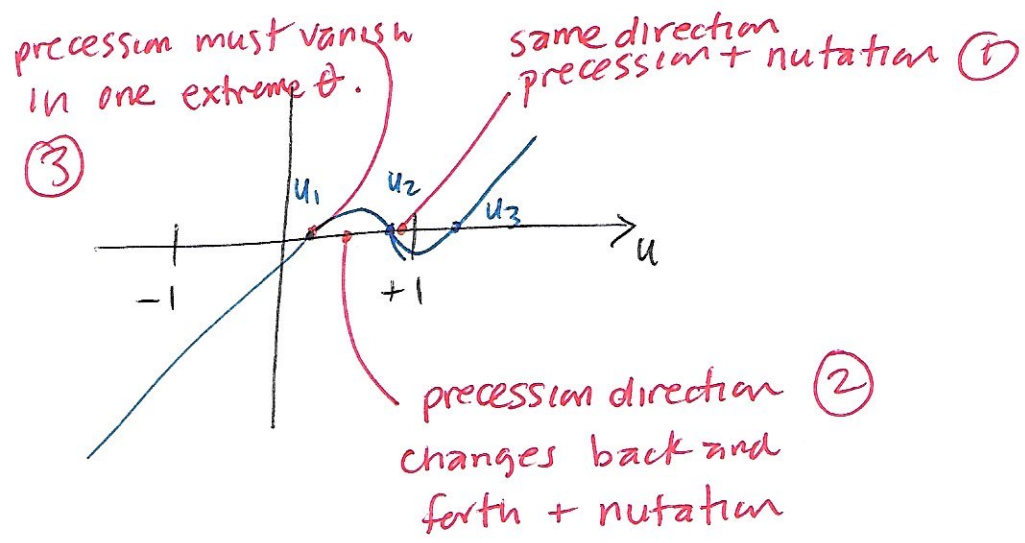 precession must vanish
in one extreme θ.
③
same direction
precession + nutation ①
u₁
u₂
u₃
u
-1
+1
precession direction ②
changes back and
forth + nutation